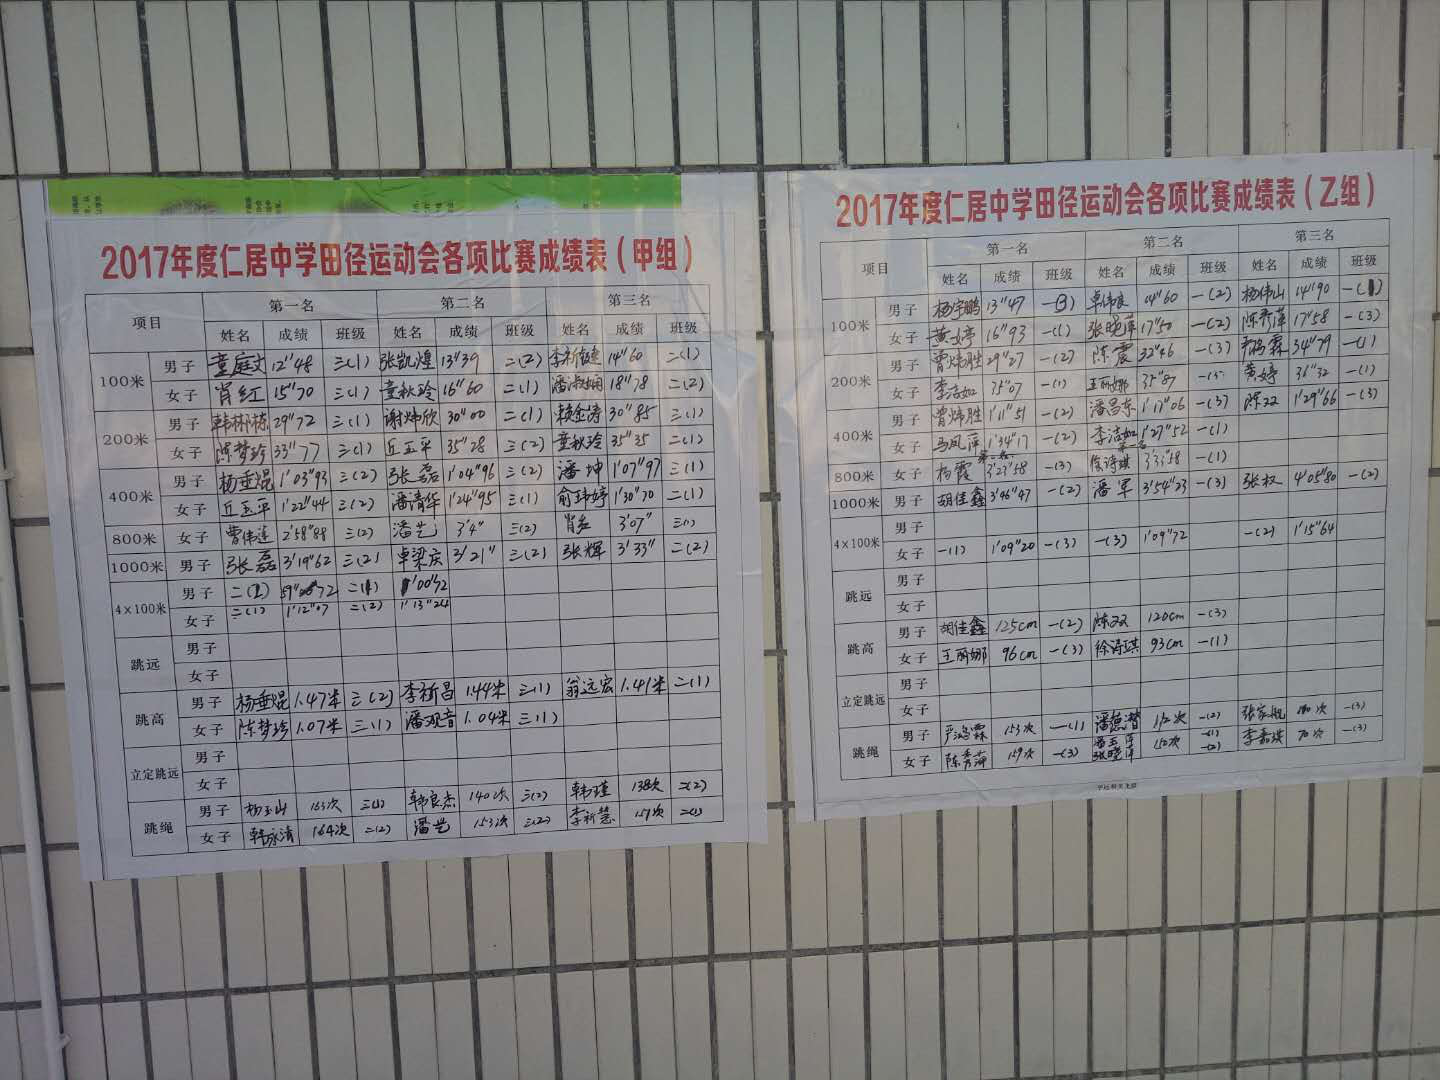 2017年度仁居中学田径运动会各项比赛成绩表（甲组）
项目 第一名 第二名 第三名
姓名 成绩 班级 姓名 成绩 班级 姓名 成绩 班级
100米 男子 童庭文 12"48 三(1) 张凯煌 13"39 二(2) 14"60 二(1)
女子 肖红 15"70 三(1) 童秋玲 16"60 二(1) 潘淑娴 18"78 二(2)
200米 男子 韩彬栋 29"72 三(1) 谢炜欣 30"00 二(1) 赖金涛 30"85 三(1)
女子 陈梦珍 33"77 三(1) 丘玉平 35"28 三(2) 童秋玲 35"35 二(1)
400米 男子 杨垂焜 1'03"93 三(2) 张磊 1'04"96 三(2) 潘坤 1'07"97 三(1)
女子 丘玉平 1'22"44 三(2) 潘清华 1'24"95 三(1) 俞玮婷 1'30"70 二(1)
800米 女子 曹伟莲 2'58"88 三(2) 潘艺 3'4" 三(2) 肖红 3'07" 三(1)
1000米 男子 张磊 3'19"62 三(2) 卓梁庆 3'21" 三(2) 张辉 3'33" 二(2)
4×100米 男子 二(2) 59"72 二(1) 1'00"72
女子 二(1) 1'12"07 二(2) 1'13"24
跳远 男子
女子
跳高 男子 杨垂焜 1.47米 三(2) 李新昌 1.44米 三(1) 翁远宏 1.41米 二(1)
女子 陈梦珍 1.07米 三(1) 潘观音 1.04米 三(1)
立定跳远 男子
女子
跳绳 男子 杨玉山 163次 三(1) 韩良杰 140次 三(2) 韩瑾 138次 二(2)
女子 韩咏清 164次 二(2) 潘艺 153次 三(2) 李新慧 151次 二(1)
2017年度仁居中学田径运动会各项比赛成绩表（乙组）
项目 第一名 第二名 第三名
姓名 成绩 班级 姓名 成绩 班级 姓名 成绩 班级
100米 男子 杨宇鹏 13"47 一(3) 卓伟良 14"60 一(2) 杨伟山 14"90 一(1)
女子 黄婷 16"93 一(1) 张晓萍 17"50 一(2) 陈秀萍 17"58 一(3)
200米 男子 曹炜胜 29"27 一(2) 陈震 32"46 一(3) 严鸿霖 34"79 一(1)
女子 李洁如 35"07 一(1) 王丽娜 35"87 一(3) 黄婷 36"32 一(1)
400米 男子 曹炜胜 1'11"51 一(2) 潘昌东 1'17"06 一(3) 陈双 1'29"66 一(3)
女子 马凤萍 1'34"17 一(2) 李洁如 1'27"52 一(1)
第二名 第一名
800米 女子 杨霞 3'23"58 一(3) 徐诗琪 3'33"58 一(1)
1000米 男子 胡佳鑫 3'46"47 一(2) 潘军 3'54"23 一(3) 张权 4'05"80 一(2)
4×100米 男子
女子 一(1) 1'09"20 一(3) 一(3) 1'09"72 一(2) 1'15"64
跳远 男子
女子
跳高 男子 胡佳鑫 125cm 一(2) 陈双 120cm 一(3)
女子 王丽娜 96cm 一(3) 徐诗琪 93cm 一(1)
立定跳远 男子
女子
跳绳 男子 严鸿霖 153次 一(1) 潘德潜 112次 一(2) 张家航 100次 一(3)
女子 陈秀萍 159次 一(3) 张晓萍 150次 一(1) 一(2) 李嘉琪 70次 一(3)